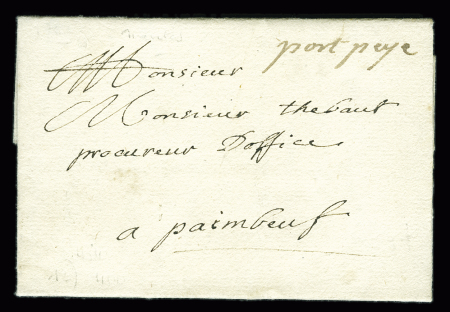 port peye
Monsieur
Monsieur thebaut
procureur Doffice
a paimbeuf